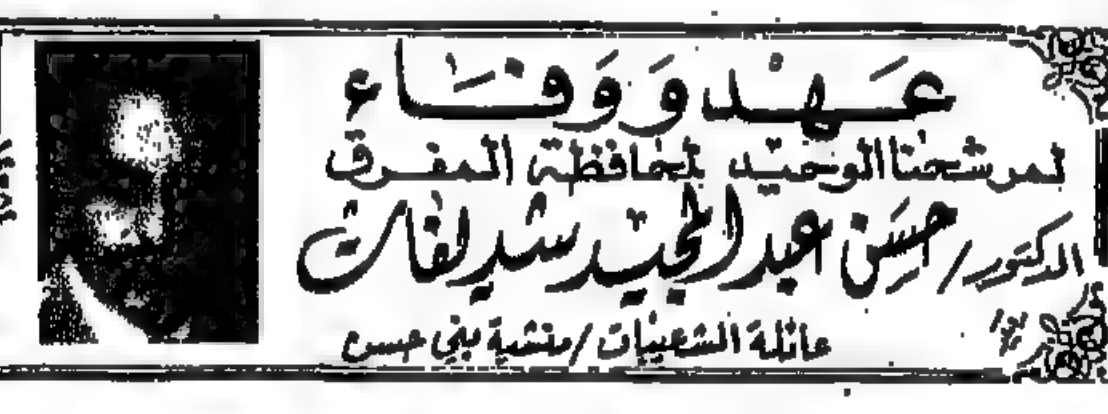 عَهْد وَوَفَاء
لمرشحنا الوحيد لمحافظة المفرق
الدكتور / حسن عبد المجيد شديفات
عائلة الشعيبات / منشية بني حسن